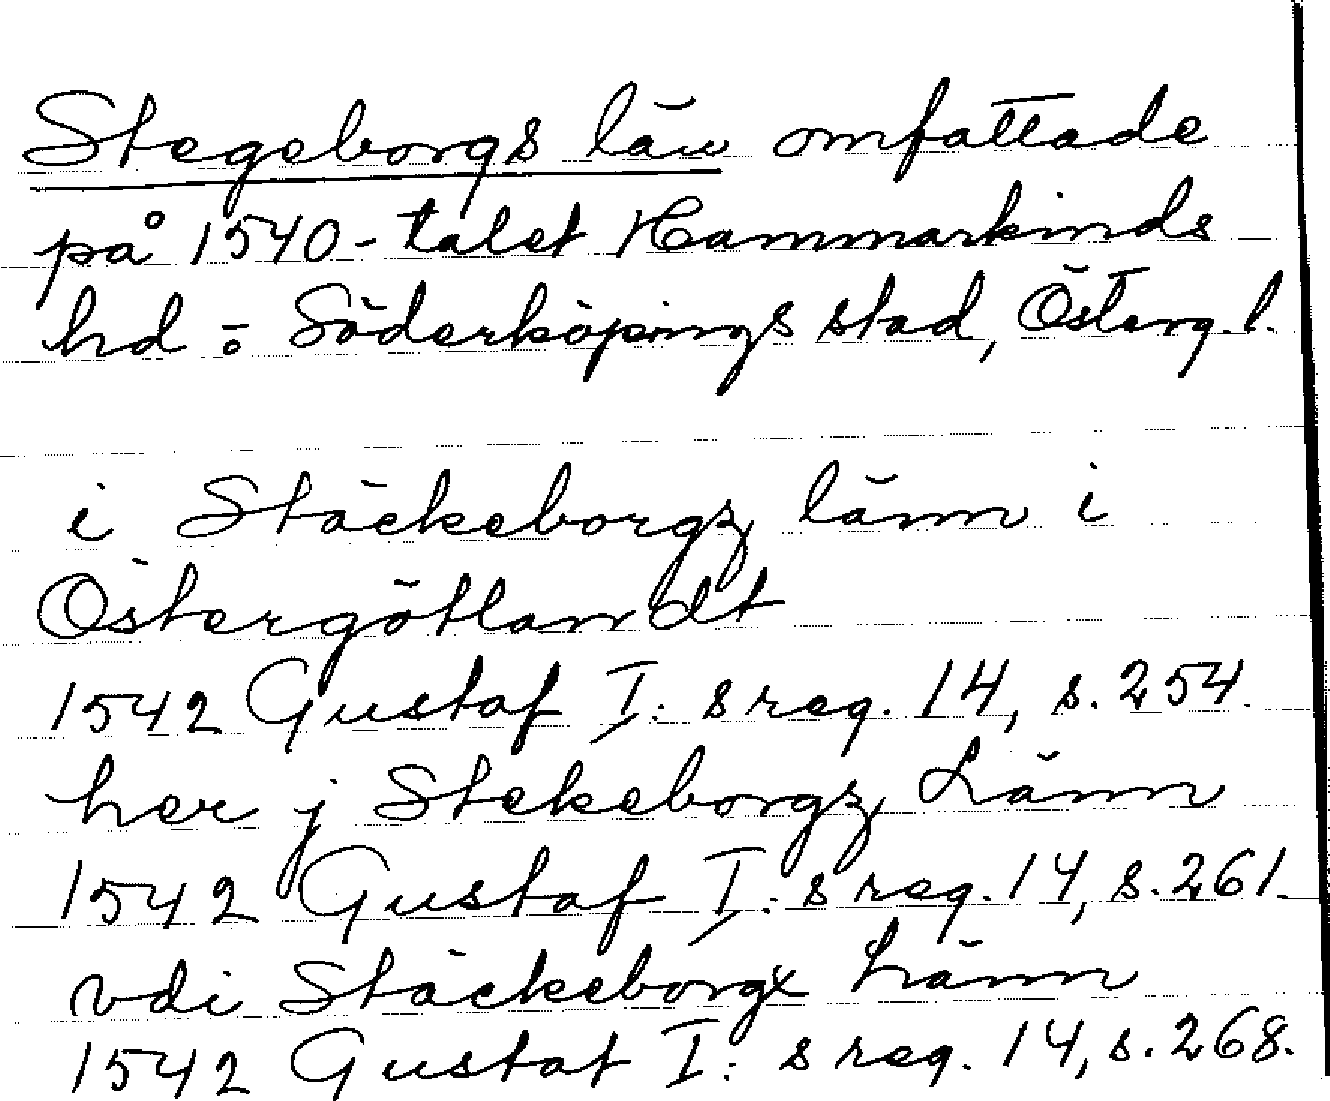 Stegeborgs län omfattade
på 1540-talet Hammarkinds
hd ÷ Söderköpings stad, Österg. l.
i Stäckeborgz länn i
Östergötlandt
1542 Gustaf I: s reg. 14, s. 254.
her j Stekeborgz Länn
1542 Gustaf I: s reg. 14, s. 261.
vdi Stäckeborgx Länn
1542 Gustaf I: s reg. 14, s. 268.